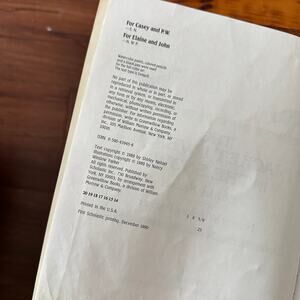 For Casey and P.W.
—S. N.
For Elaine and John
—N. W. P.
Watercolor paints, colored pencils
and a black pen were used
for the full-color art.
The text type is
No part of this publication may be
reproduced in whole or in part, or stored
in a retrieval system, or transmitted in
any form or by any means, electronic,
mechanical, photocopying, recording, or
otherwise, without written permission of
the publisher. For information regarding
permission, write to Greenwillow Books, a
division of William Morrow & Company,
Inc., 105 Madison Avenue, New York, NY
10016.
ISBN 0-590-43445-9
Text copyright © 1989 by Shirley Neitzel
Illustrations copyright © 1989 by Nancy
Winslow Parker
All rights reserved. Published by
Scholastic Inc., 730 Broadway, New
York, NY 10003, by arrangement with
Greenwillow Books, a division of William
Morrow & Company.
20 19 18 17 16 15 14
5/9
Printed in the U.S.A.
23
First Scholastic printing, December 1990